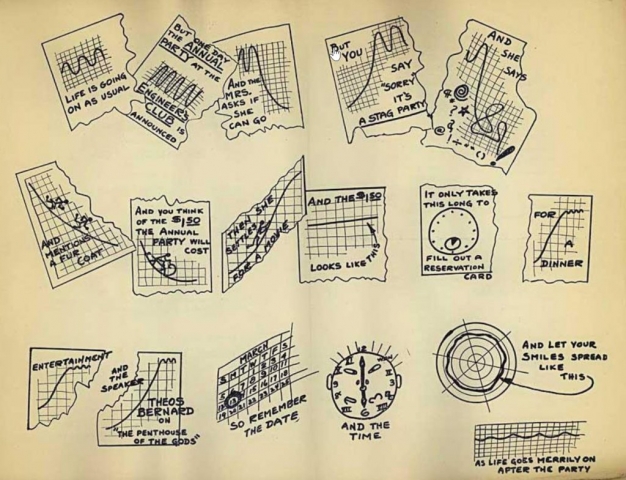 LIFE IS GOING
ON AS USUAL
BUT ONE DAY
THE ANNUAL
PARTY AT THE
ENGINEER'S
CLUB IS
ANNOUNCED
AND THE
MRS.
ASKS IF
SHE
CAN GO
BUT
YOU
SAY
"SORRY
IT'S
A STAG PARTY
AND
SHE
SAYS
AND
MENTIONS
A FUR
COAT
AND YOU THINK
OF THE $1.50
THE ANNUAL
PARTY WILL
COST
THEN SHE
SETTLES
FOR A MOVIE
AND THE $1.50
LOOKS LIKE THIS
IT ONLY TAKES
THIS LONG TO
FILL OUT A
RESERVATION
CARD
FOR
A
DINNER
ENTERTAINMENT
AND
THE
SPEAKER
THEOS
BERNARD
ON
"THE PENTHOUSE
OF THE GODS"
MARCH
S M T W T F S
SO REMEMBER
THE DATE
AND THE
TIME
AND LET YOUR
SMILES SPREAD
LIKE
THIS
AS LIFE GOES MERRILY ON
AFTER THE PARTY